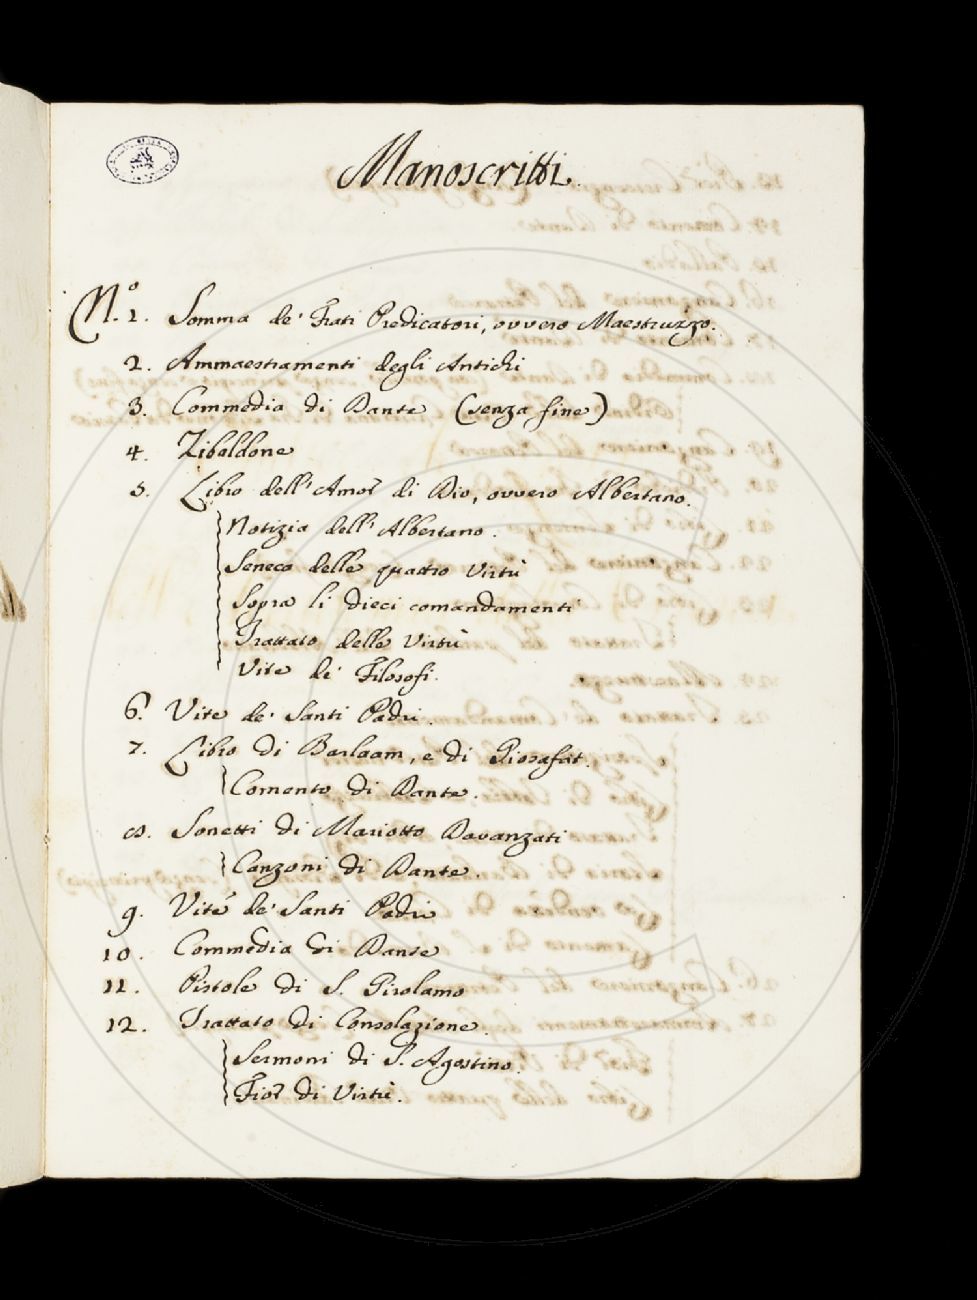 Manoscritti.
N.° 1. Somma de' Frati Predicatori, ovvero Maestruzzo.
2. Ammaestramenti degli Antichi
3. Commedia di Dante (senza fine)
4. Zibaldone
5. Libro dell'Amor di Dio, ovvero Albertano.
Notizia dell'Albertano.
Seneca delle quattro Virtù
Sopra li dieci comandamenti
Trattato delle Virtù
Vite de' Filosofi.
6. Vite de' Santi Padri.
7. Libro di Barlaam, e di Giosafat.
Comento di Dante.
8. Sonetti di Mariotto Davanzati
Canzoni di Dante.
9. Vite de' Santi Padri
10. Commedia di Dante
11. Pistole di S. Girolamo
12. Trattato di Consolazione.
Sermoni di S. Agostino.
Fior di Virtù.